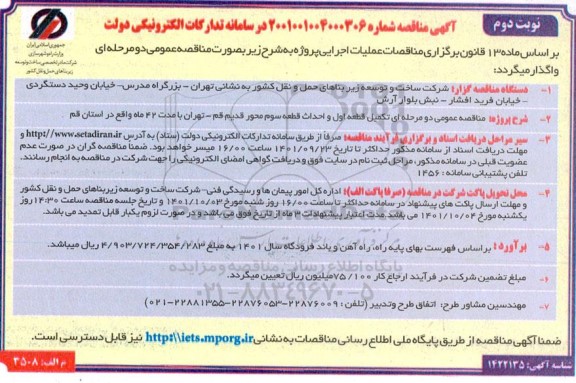 نوبت دوم
آگهی مناقصه شماره ۲۰۰۱۰۰۱۰۰۴۰۰۰۳۰۶ در سامانه تدارکات الکترونیکی دولت
جمهوری اسلامی ایران
وزارت راه و شهرسازی
شرکت مادر تخصصی ساخت و توسعه
زیربناهای حمل و نقل کشور
بر اساس ماده ۱۳ قانون برگزاری مناقصات عملیات اجرایی پروژه به شرح زیر بصورت مناقصه عمومی دو مرحله ای
واگذار میگردد:
۱- دستگاه مناقصه گزار: شرکت ساخت و توسعه زیربناهای حمل و نقل کشور به نشانی تهران – بزرگراه مدرس- خیابان وحید دستگردی
– خیابان فرید افشار – نبش بلوار آرش
۲- شرح پروژه: مناقصه عمومی دو مرحله ای تکمیل قطعه اول و احداث قطعه سوم محور قدیم قم – تهران با مدت ۴۲ ماه واقع در استان قم
۳- سیر مراحل دریافت اسناد و برگزاری فرآیند مناقصه: صرفا از طریق سامانه تدارکات الکترونیکی دولت (ستاد) به آدرس http://www.setadiran.ir و
مهلت دریافت اسناد از سامانه مذکور حداکثر تا تاریخ ۱۴۰۱/۰۹/۲۳ ساعت ۱۶/۰۰ میسر خواهد بود. ضمنا مناقصه گران در صورت عدم
عضویت قبلی در سامانه مذکور، مراحل ثبت نام در سایت فوق و دریافت گواهی امضای الکترونیکی را جهت شرکت در مناقصه به انجام رسانند.
تلفن پشتیبانی سامانه: ۱۴۵۶
۴- محل تحویل پاکت شرکت در مناقصه (صرفا پاکت الف): اداره کل امور پیمان ها و رسیدگی فنی – شرکت ساخت و توسعه زیربناهای حمل و نقل کشور
و مهلت ارسال پاکت های پیشنهاد در سامانه حداکثر تا ساعت ۱۶/۰۰ روز شنبه مورخ ۱۴۰۱/۱۰/۰۳ و تاریخ جلسه مناقصه ساعت ۱۴:۳۰ روز
یکشنبه مورخ ۱۴۰۱/۱۰/۰۴ می باشد. مدت اعتبار پیشنهادات ۳ ماه از تاریخ فوق می باشد و در صورت لزوم یکبار قابل تمدید می باشد.
۵- برآورد: بر اساس فهرست بهای پایه راه، راه آهن و باند فرودگاه سال ۱۴۰۱ به مبلغ ۴/۹۰۳/۷۲۴/۳۵۴/۲۸۳ ریال میباشد.
۶- مبلغ تضمین شرکت در فرآیند ارجاع کار ۷۵/۱۰۰ میلیون ریال تعیین میگردد.
۷- مهندسین مشاور طرح: اتفاق طرح و تدبیر (تلفن: ۲۲۸۷۶۰۰۹-۲۲۸۷۶۰۵۳-۲۲۸۸۱۳۵۵-۰۲۱)
پایگاه اطلاع رسانی مناقصه و مزایده
۰۲۱-۸۸۳۴۹۶۷۰-۵
ضمنا آگهی مناقصه از طریق پایگاه ملی اطلاع رسانی مناقصات به نشانی http:\\iets.mporg.ir نیز قابل دسترسی است.
شناسه آگهی: ۱۴۲۲۱۳۵
م الف: ۳۵۰۸